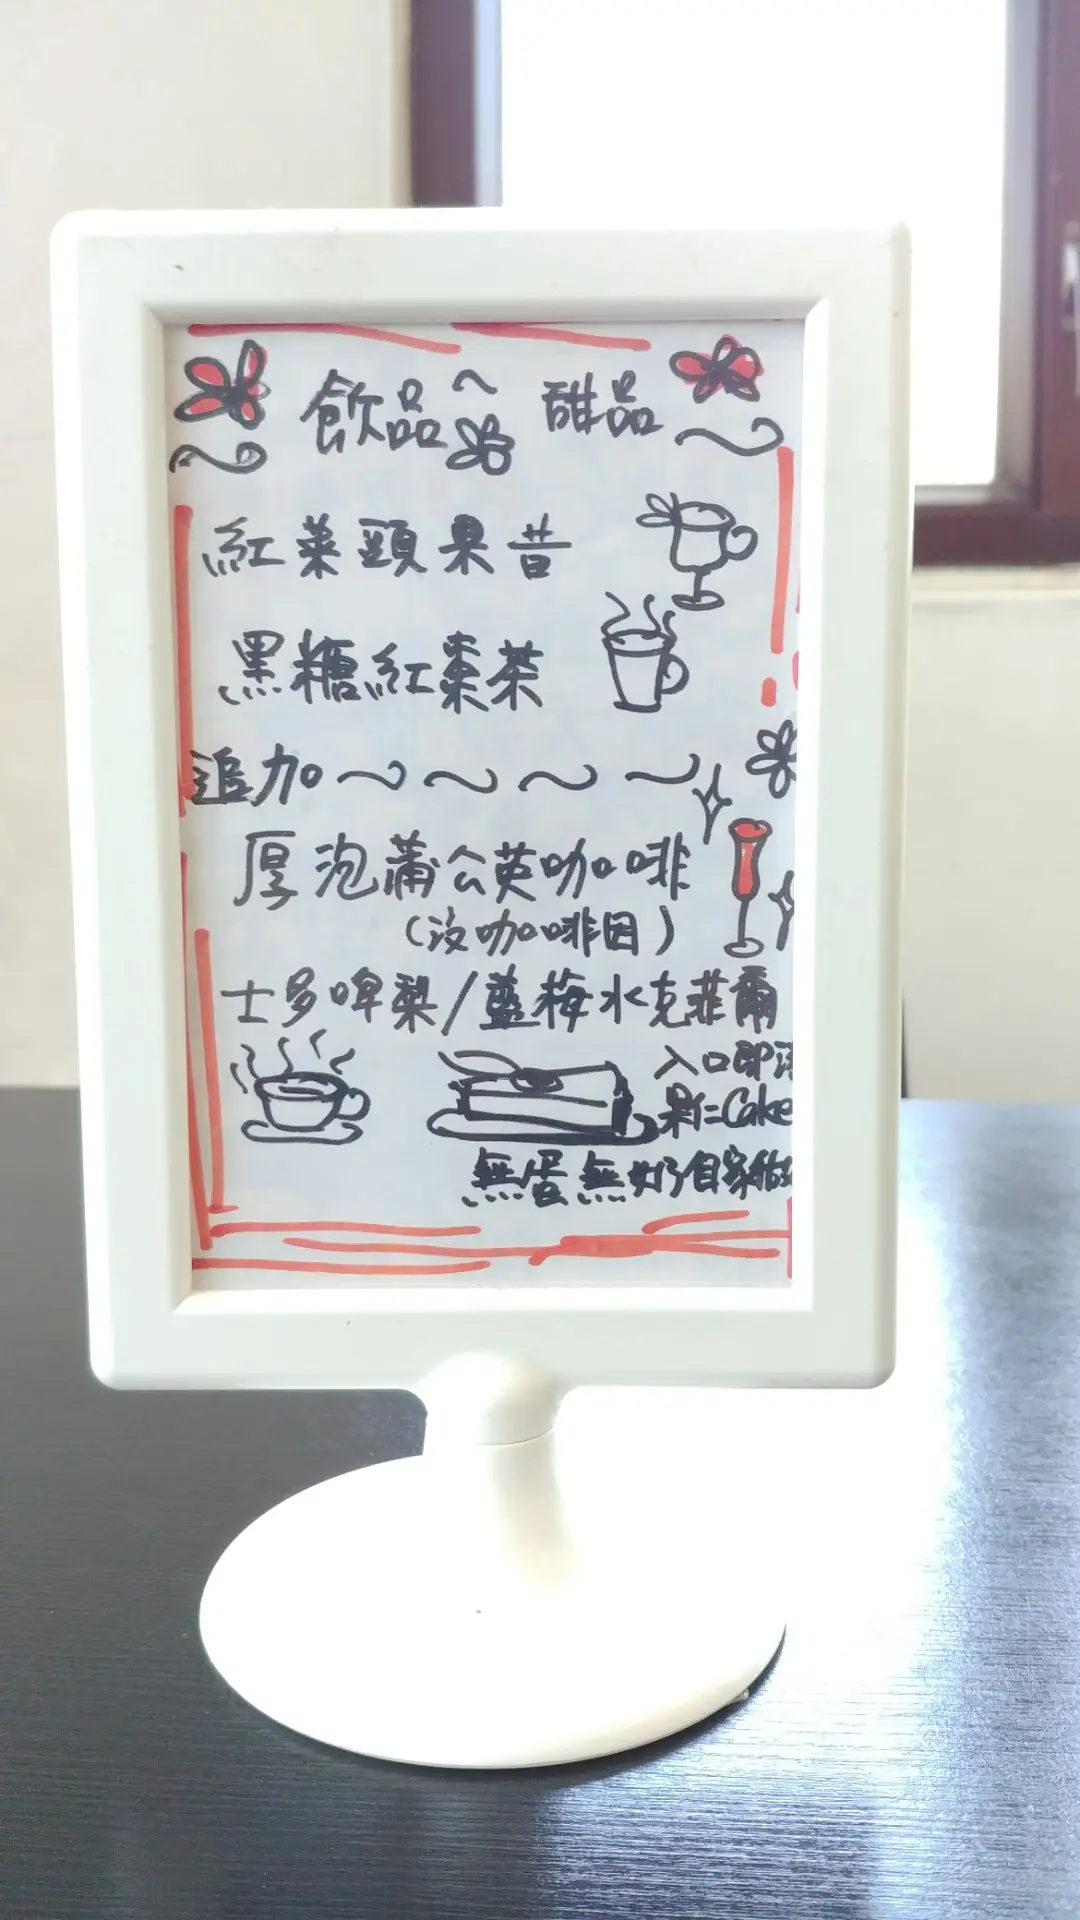 飲品 甜品
紅菜頭果昔
黑糖紅棗茶
追加
厚泡蒲公英咖啡
(沒咖啡因)
士多啤梨/藍梅水克菲爾
入口即
果仁Cake
無蛋無奶自家做